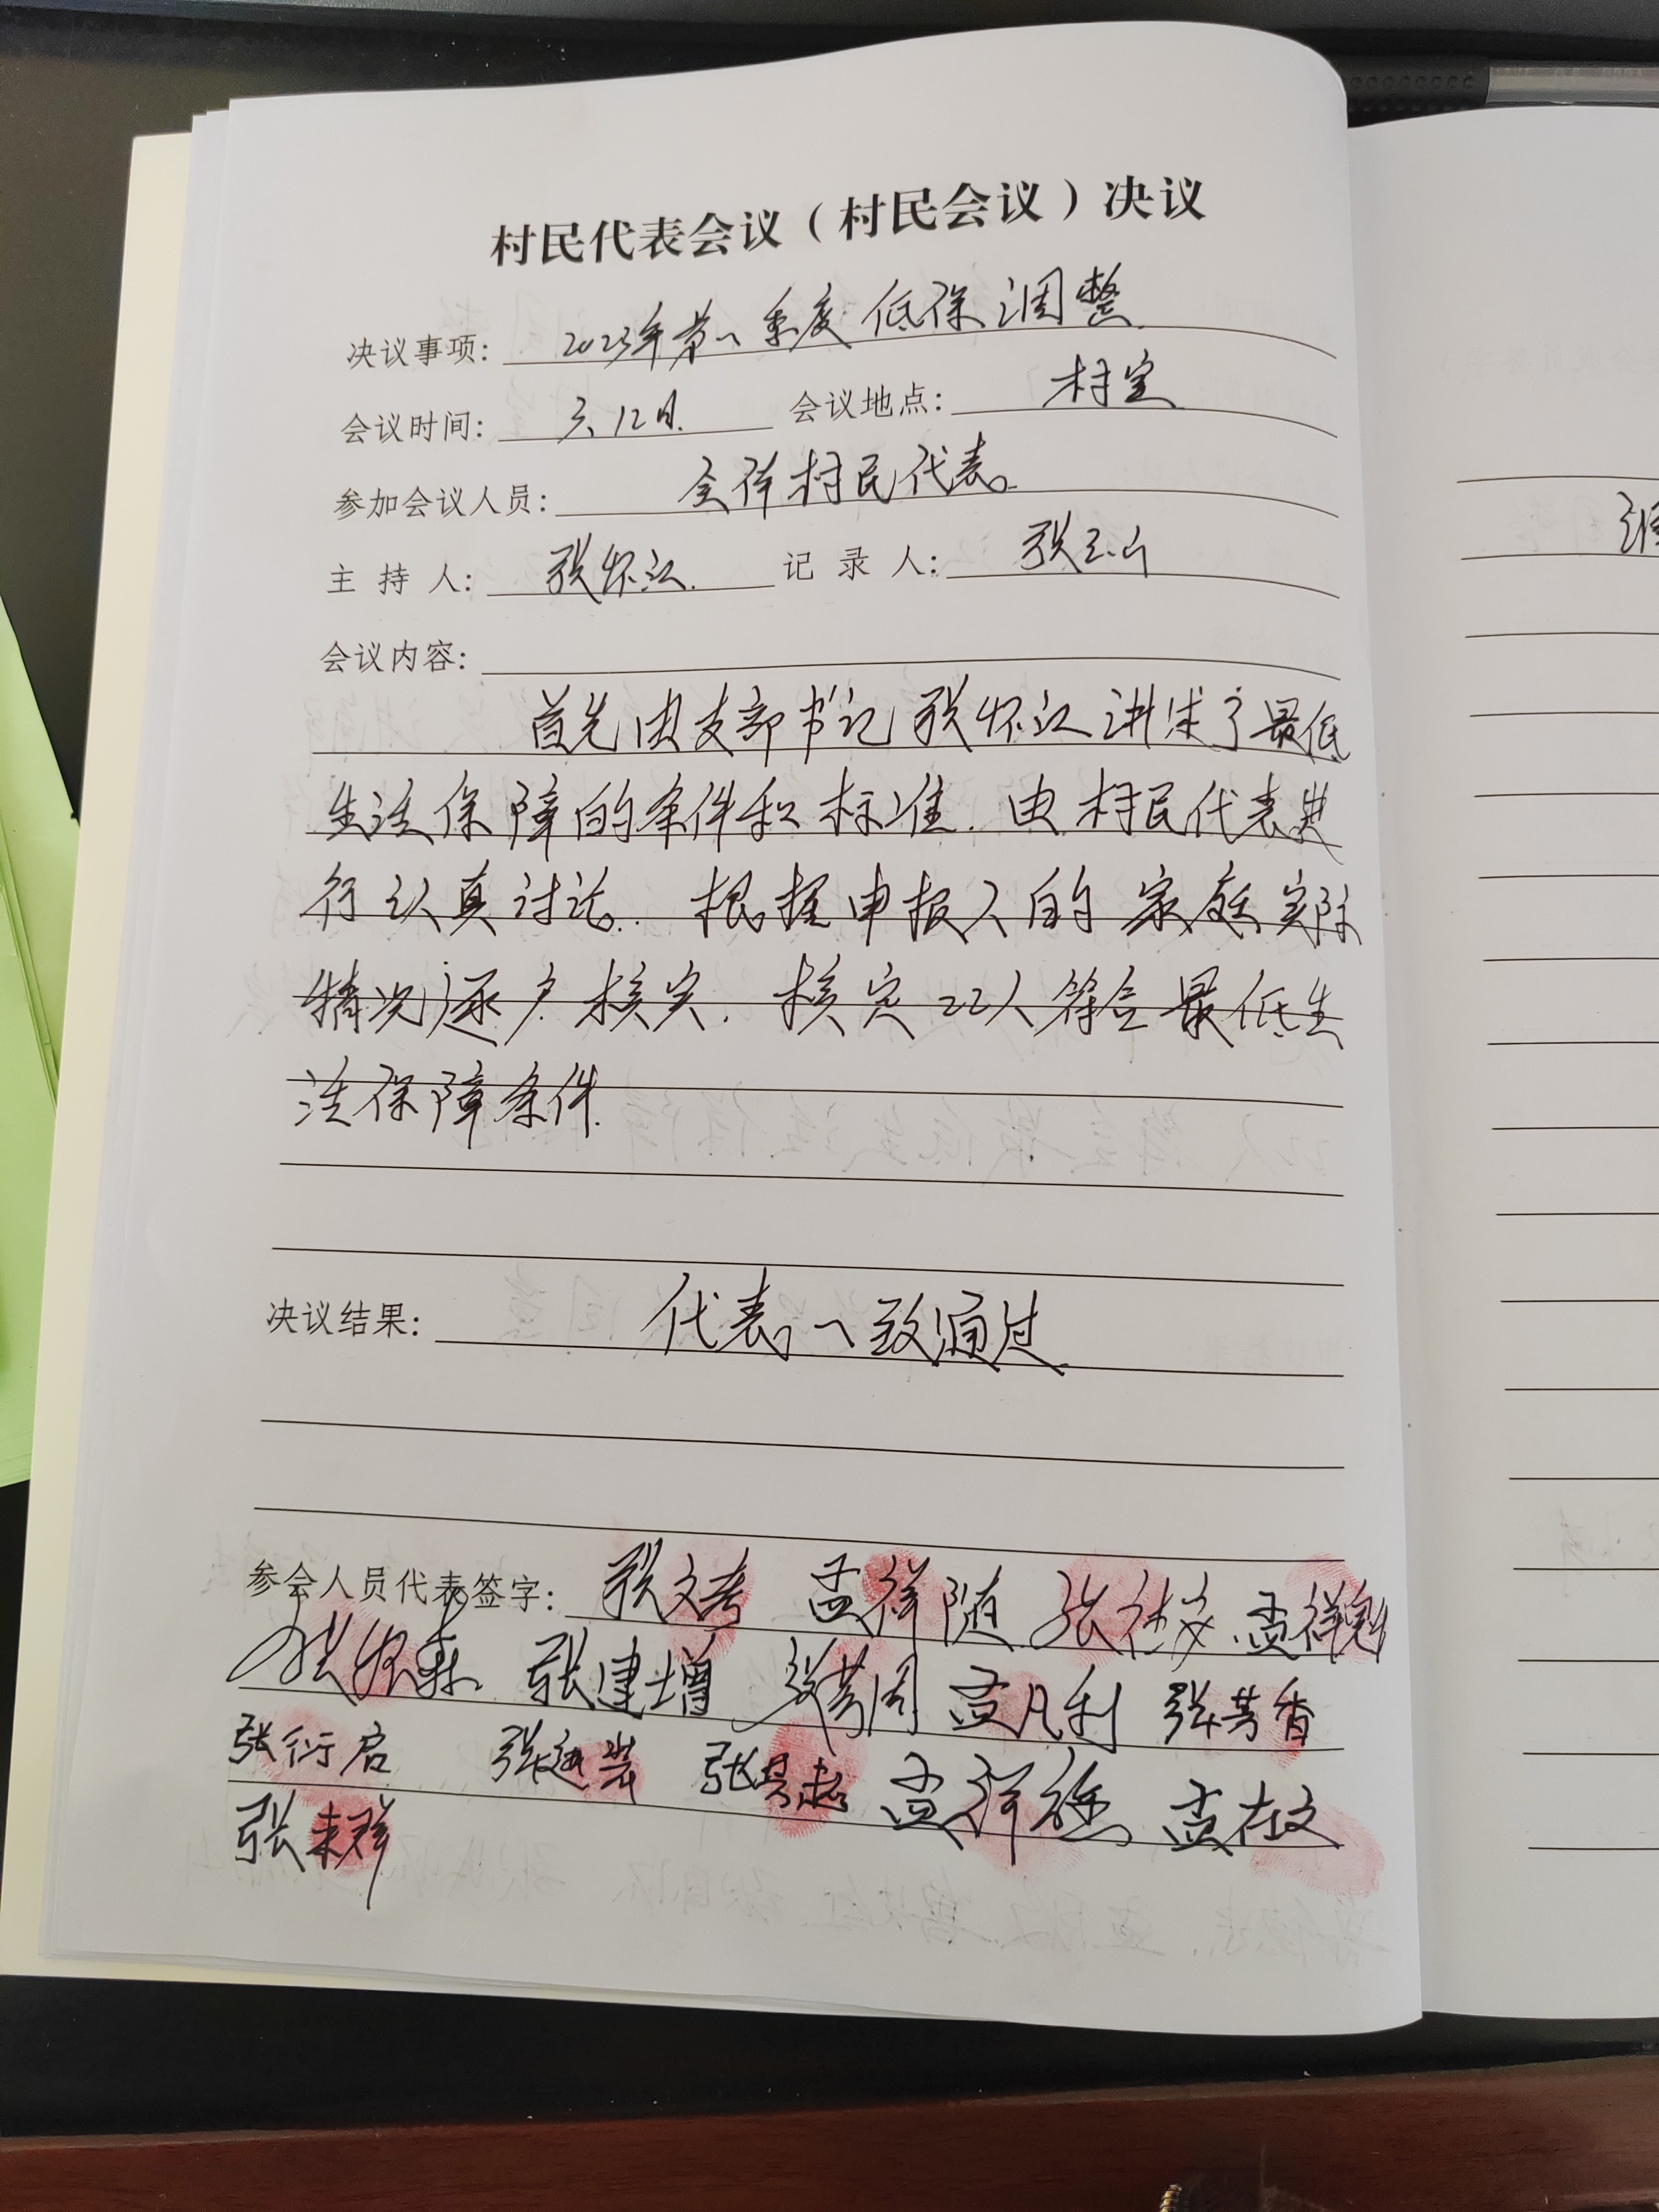 村民代表会议（村民会议）决议
决议事项：2023年第一季度低保调整
会议时间：3.12日. 会议地点：村室
参加会议人员：全体村民代表
主 持 人：张怀江. 记 录 人：张玉山
会议内容：
首先由支部书记张怀江讲述了最低
生活保障的条件和标准.由村民代表进
行认真讨论.根据申报人的家庭实际
情况逐户核实.核定22人符合最低生
活保障条件.
决议结果：代表一致通过
参会人员代表签字：张文考 孟祥随 孟祥
张建增 张芳阁 孟凡利 张芳香
张衍启 张 张 孟祥 孟在文
张来群